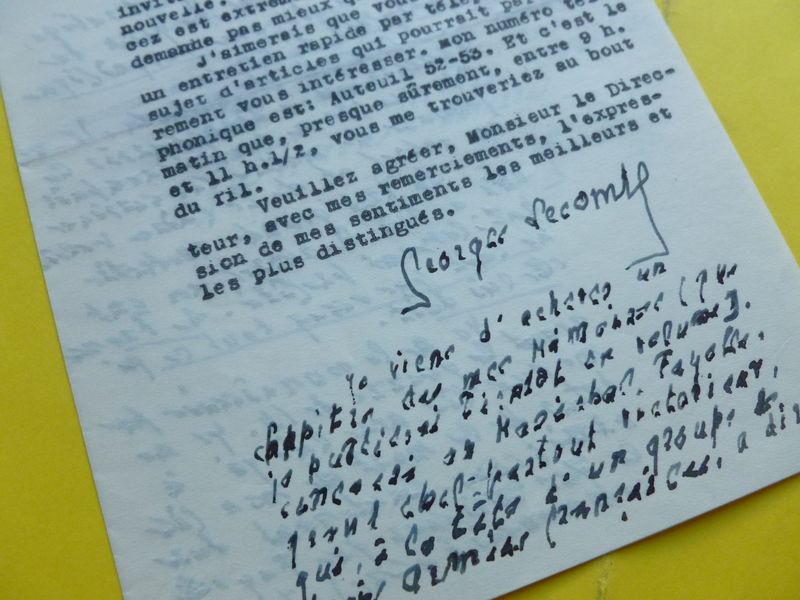 invit
nouvelle.
cez est extrêm
demande pas mieux q
J'aimerais que vou
un entretien rapide par télé
sujet d'articles qui pourrait pa
rement vous intéresser. Mon numéro té
phonique est: Auteuil 52-53. Et c'est le
matin que, presque sûrement, entre 9 h.
et 11 h.1/2, vous me trouveriez au bout
du fil.
Veuillez agréer, Monsieur le Direc-
teur, avec mes remerciements, l'expres-
sion de mes sentiments les meilleurs et
les plus distingués.
Georges Lecomte
Je viens d'achever un
chapitre de mes Mémoires (que
je publierai bientôt en volume),
consacré au Maréchal Fayolle,
grand chef partout victorieux,
qui, à la tête d'un groupe de
armées françaises, a